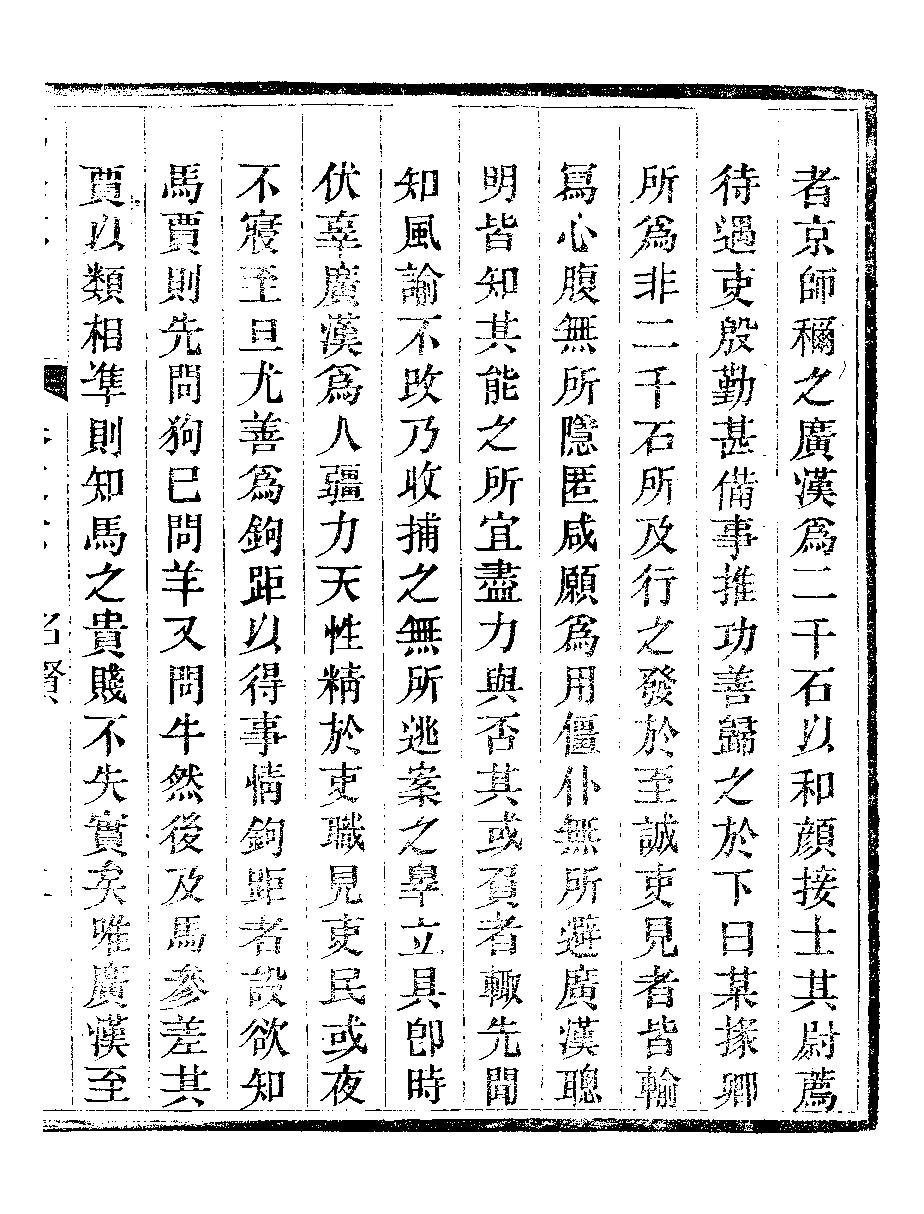 者京師稱之廣漢爲二千石以和顔接士其尉薦
待遇吏殷勤甚備事推功善歸之於下曰某掾卿
所爲非二千石所及行之發於至誠吏見者皆輸
寫心腹無所隱匿咸願爲用僵仆無所避廣漢聰
明皆知其能之所宜盡力與否其或負者輒先聞
知風諭不改乃收捕之無所逃案之辠立具卽時
伏辜廣漢爲人彊力天性精於吏職見吏民或夜
不寢至旦尤善爲鉤距以得事情鉤距者設欲知
馬賈則先問狗已問羊又問牛然後及馬參差其
賈以類相準則知馬之貴賤不失實矣唯廣漢至
名賢